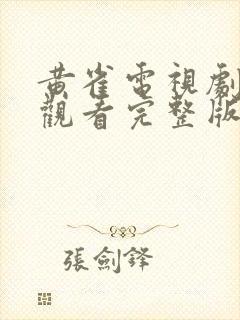 黃雀電視劇
觀看完整版
張劍鋒